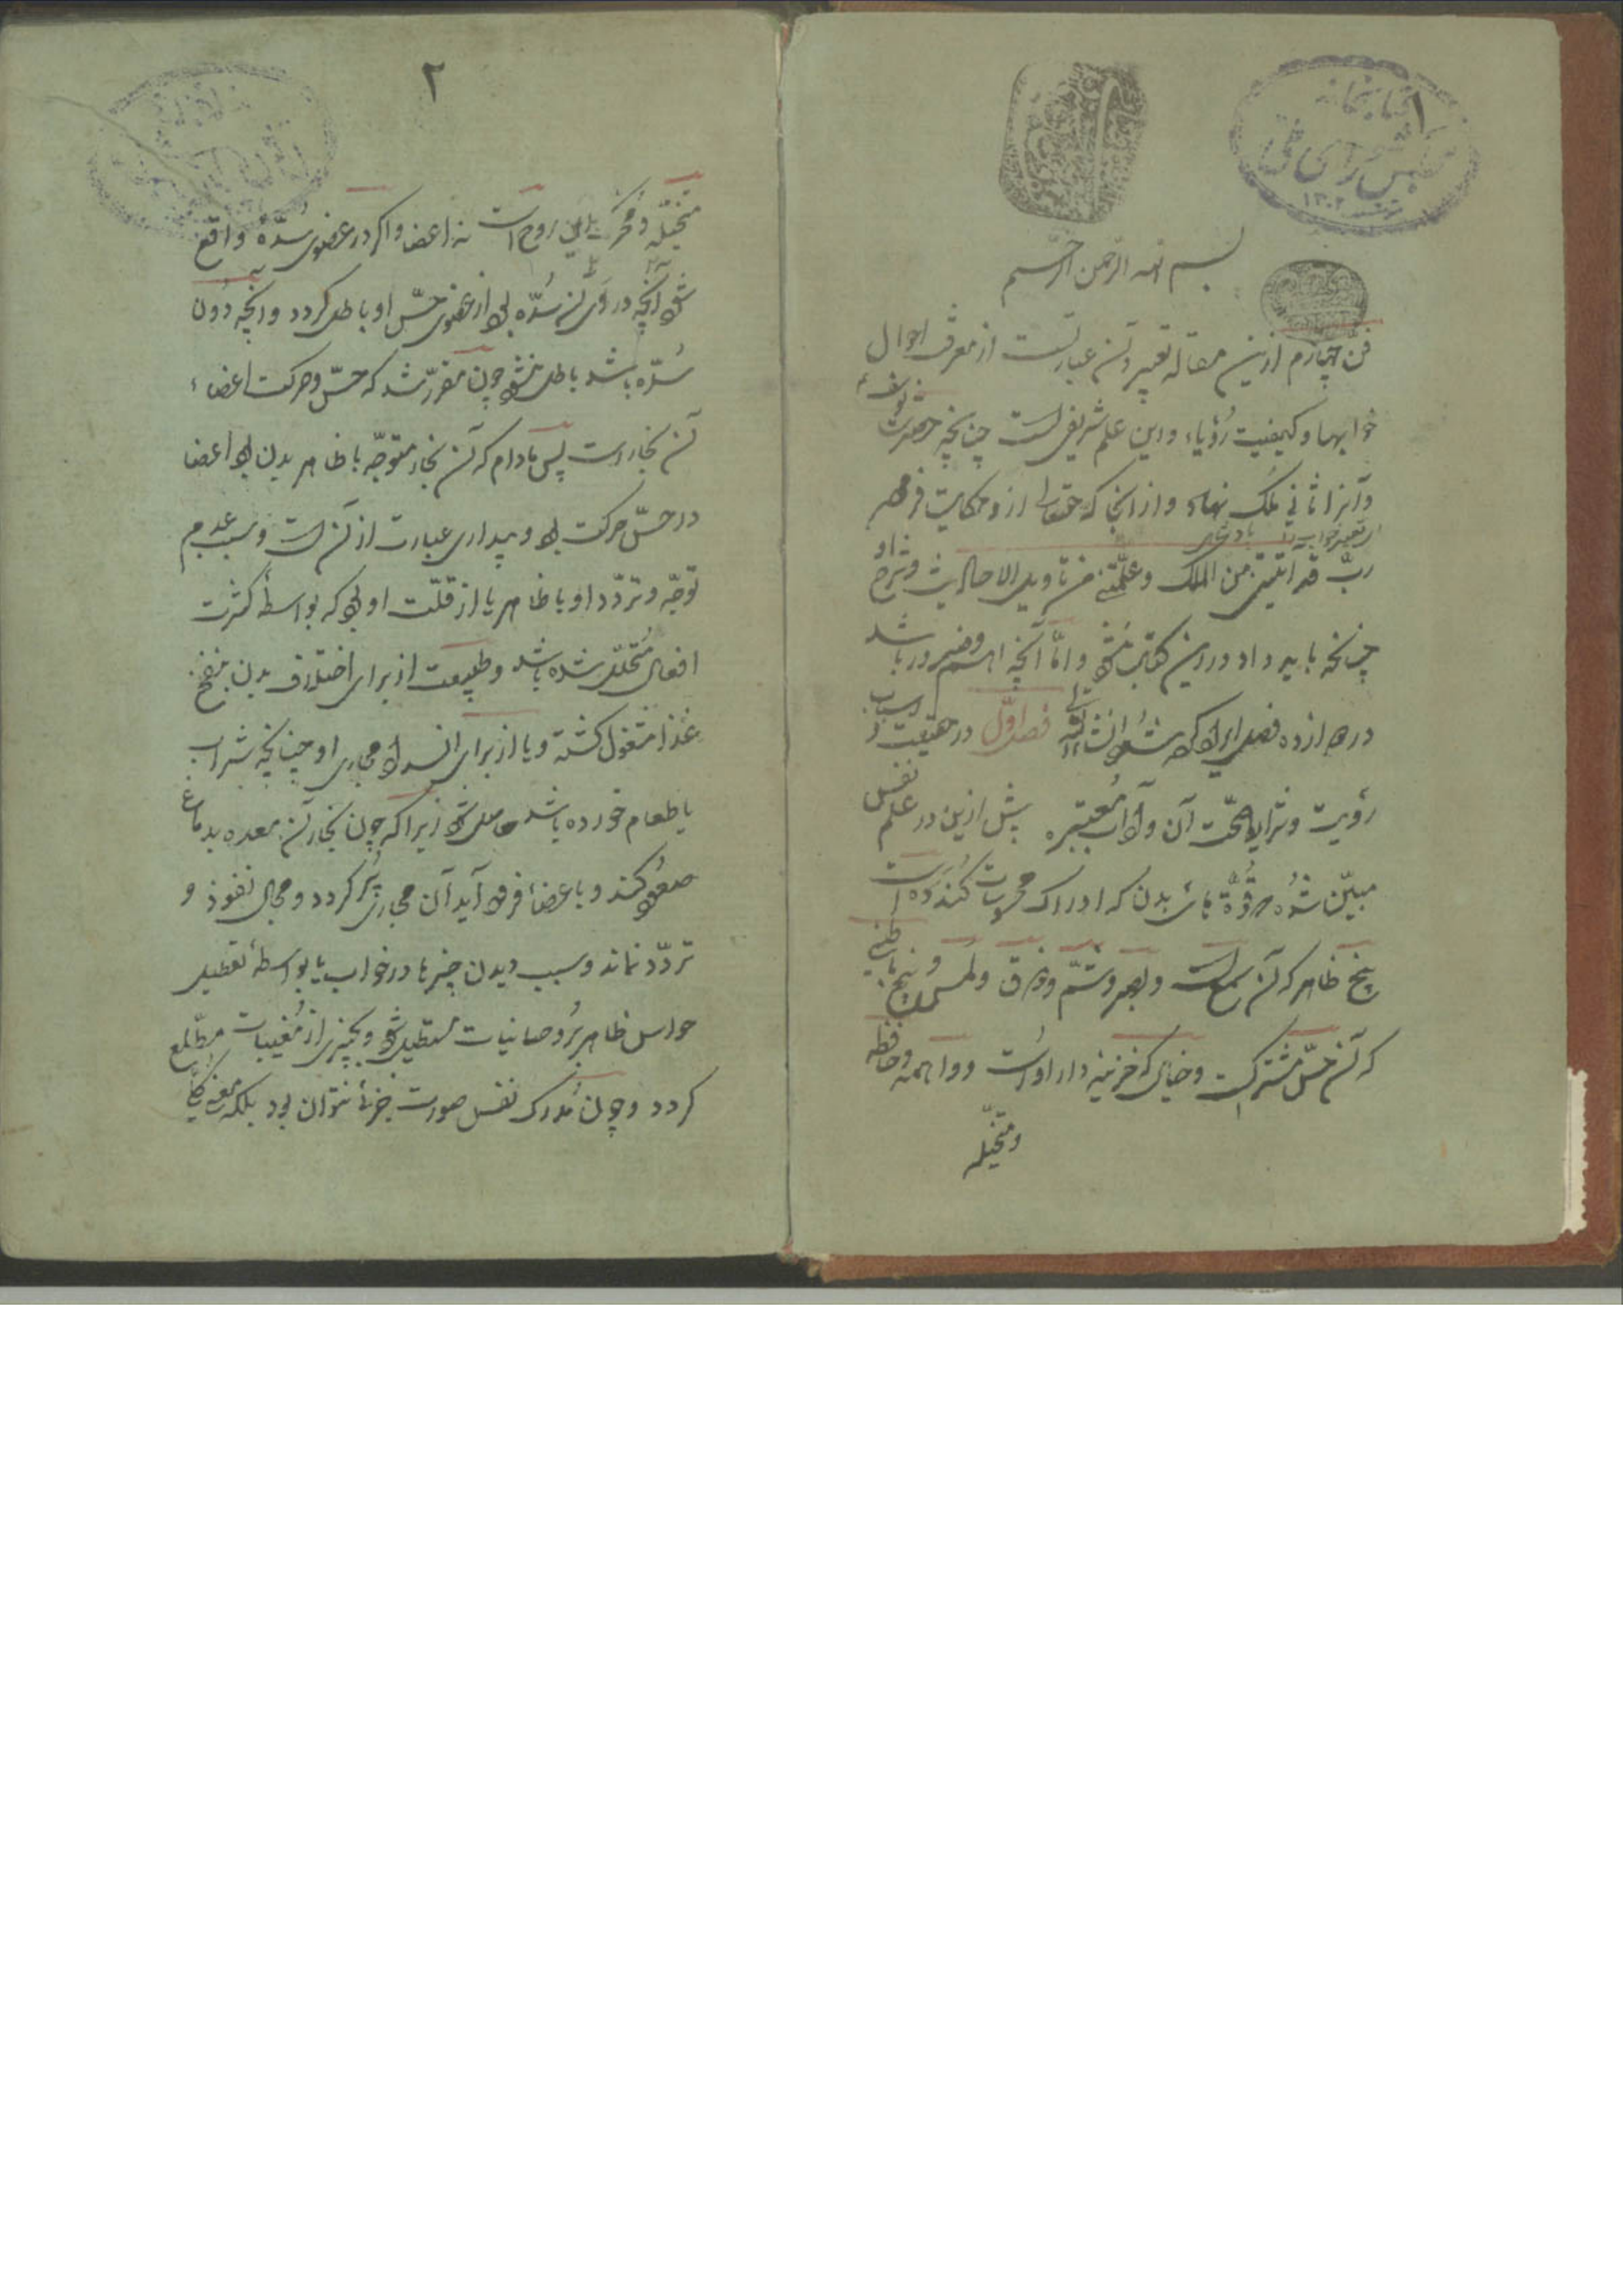 ۱
کتابخانه
مجلس شورای ملی
۱۳۰۲
بسم الله الرحمن الرحیم
فن چهارم ازین مقاله تعبیر و آن عبارتست از معرفت احوال
خوابها و کیفیت رؤیا و این علم شریفی است چنانچه حضرت
و آنرا ثانی ملک نهاد و از آنجا که حقتعالی ازو حکایت فرمود
ربّ قد آتیتنی من الملک و علّمتنی من تأویل الاحادیث و شرح او
چنانکه باید داد درین کتاب و امّا آنچه اهم و ضرور باشد
در دوازده فصل ایراد کرده شود انشاء الله تعالی فصل اوّل در حقیقت و اسباب
رؤیت و شرایط صحّت آن و آداب معتبره پیش ازین در علم نفس
مبیّن شده قوّة های بدن که ادراک محسوسات کننده ده است
پنج ظاهر که آن سمع است و بصر و شمّ و ذوق و لمس و پنج باطنی
که آن حسّ مشترکست و خیال که خزینه دار اوست و واهمه و حافظه
و متخیّله
۲
متخیّله و روح است نه اعضا و اگر در عضوی سدّهٔ واقع
شود آنچه در آن سُدّه بود از عضوی حسّ او باطل گردد و آنچه دون
سُدّه باشد باطل نشود چون مقرّر شد که حسّ و حرکت اعضاء
آن بخار است پس مادام که آن بخار متوجّه با ظاهر بدن بود اعضا
در حسّ حرکت بود و بیداری عبارت از آن است و سبب عدم
توجّه و تردّد او با ظاهر یا از قلّت او بود که بواسطهٔ کثرت
افعال مُتحلّل شده باشد و طبیعت از برای بدن بنضج
غذا مشغول گشته و یا از برای انسداد مجاری او چنانچه شراب
یا طعام خورده باشد حاصل شود زیرا که چون بخار آن بمعده بدماغ
صعود کند و باعضا فرود آید آن مجاری پُر گردد و مجال نفوذ و
تردّد نماند و سبب دیدن چیزها در خواب یا بواسطهٔ تعطیل
حواس ظاهر برُوحانیات شود و بچیزی از مُغیبات مطّلع
گردد و چون مُدرک نفس صورت جزئی نتوان بود بلکه معنی کلّی